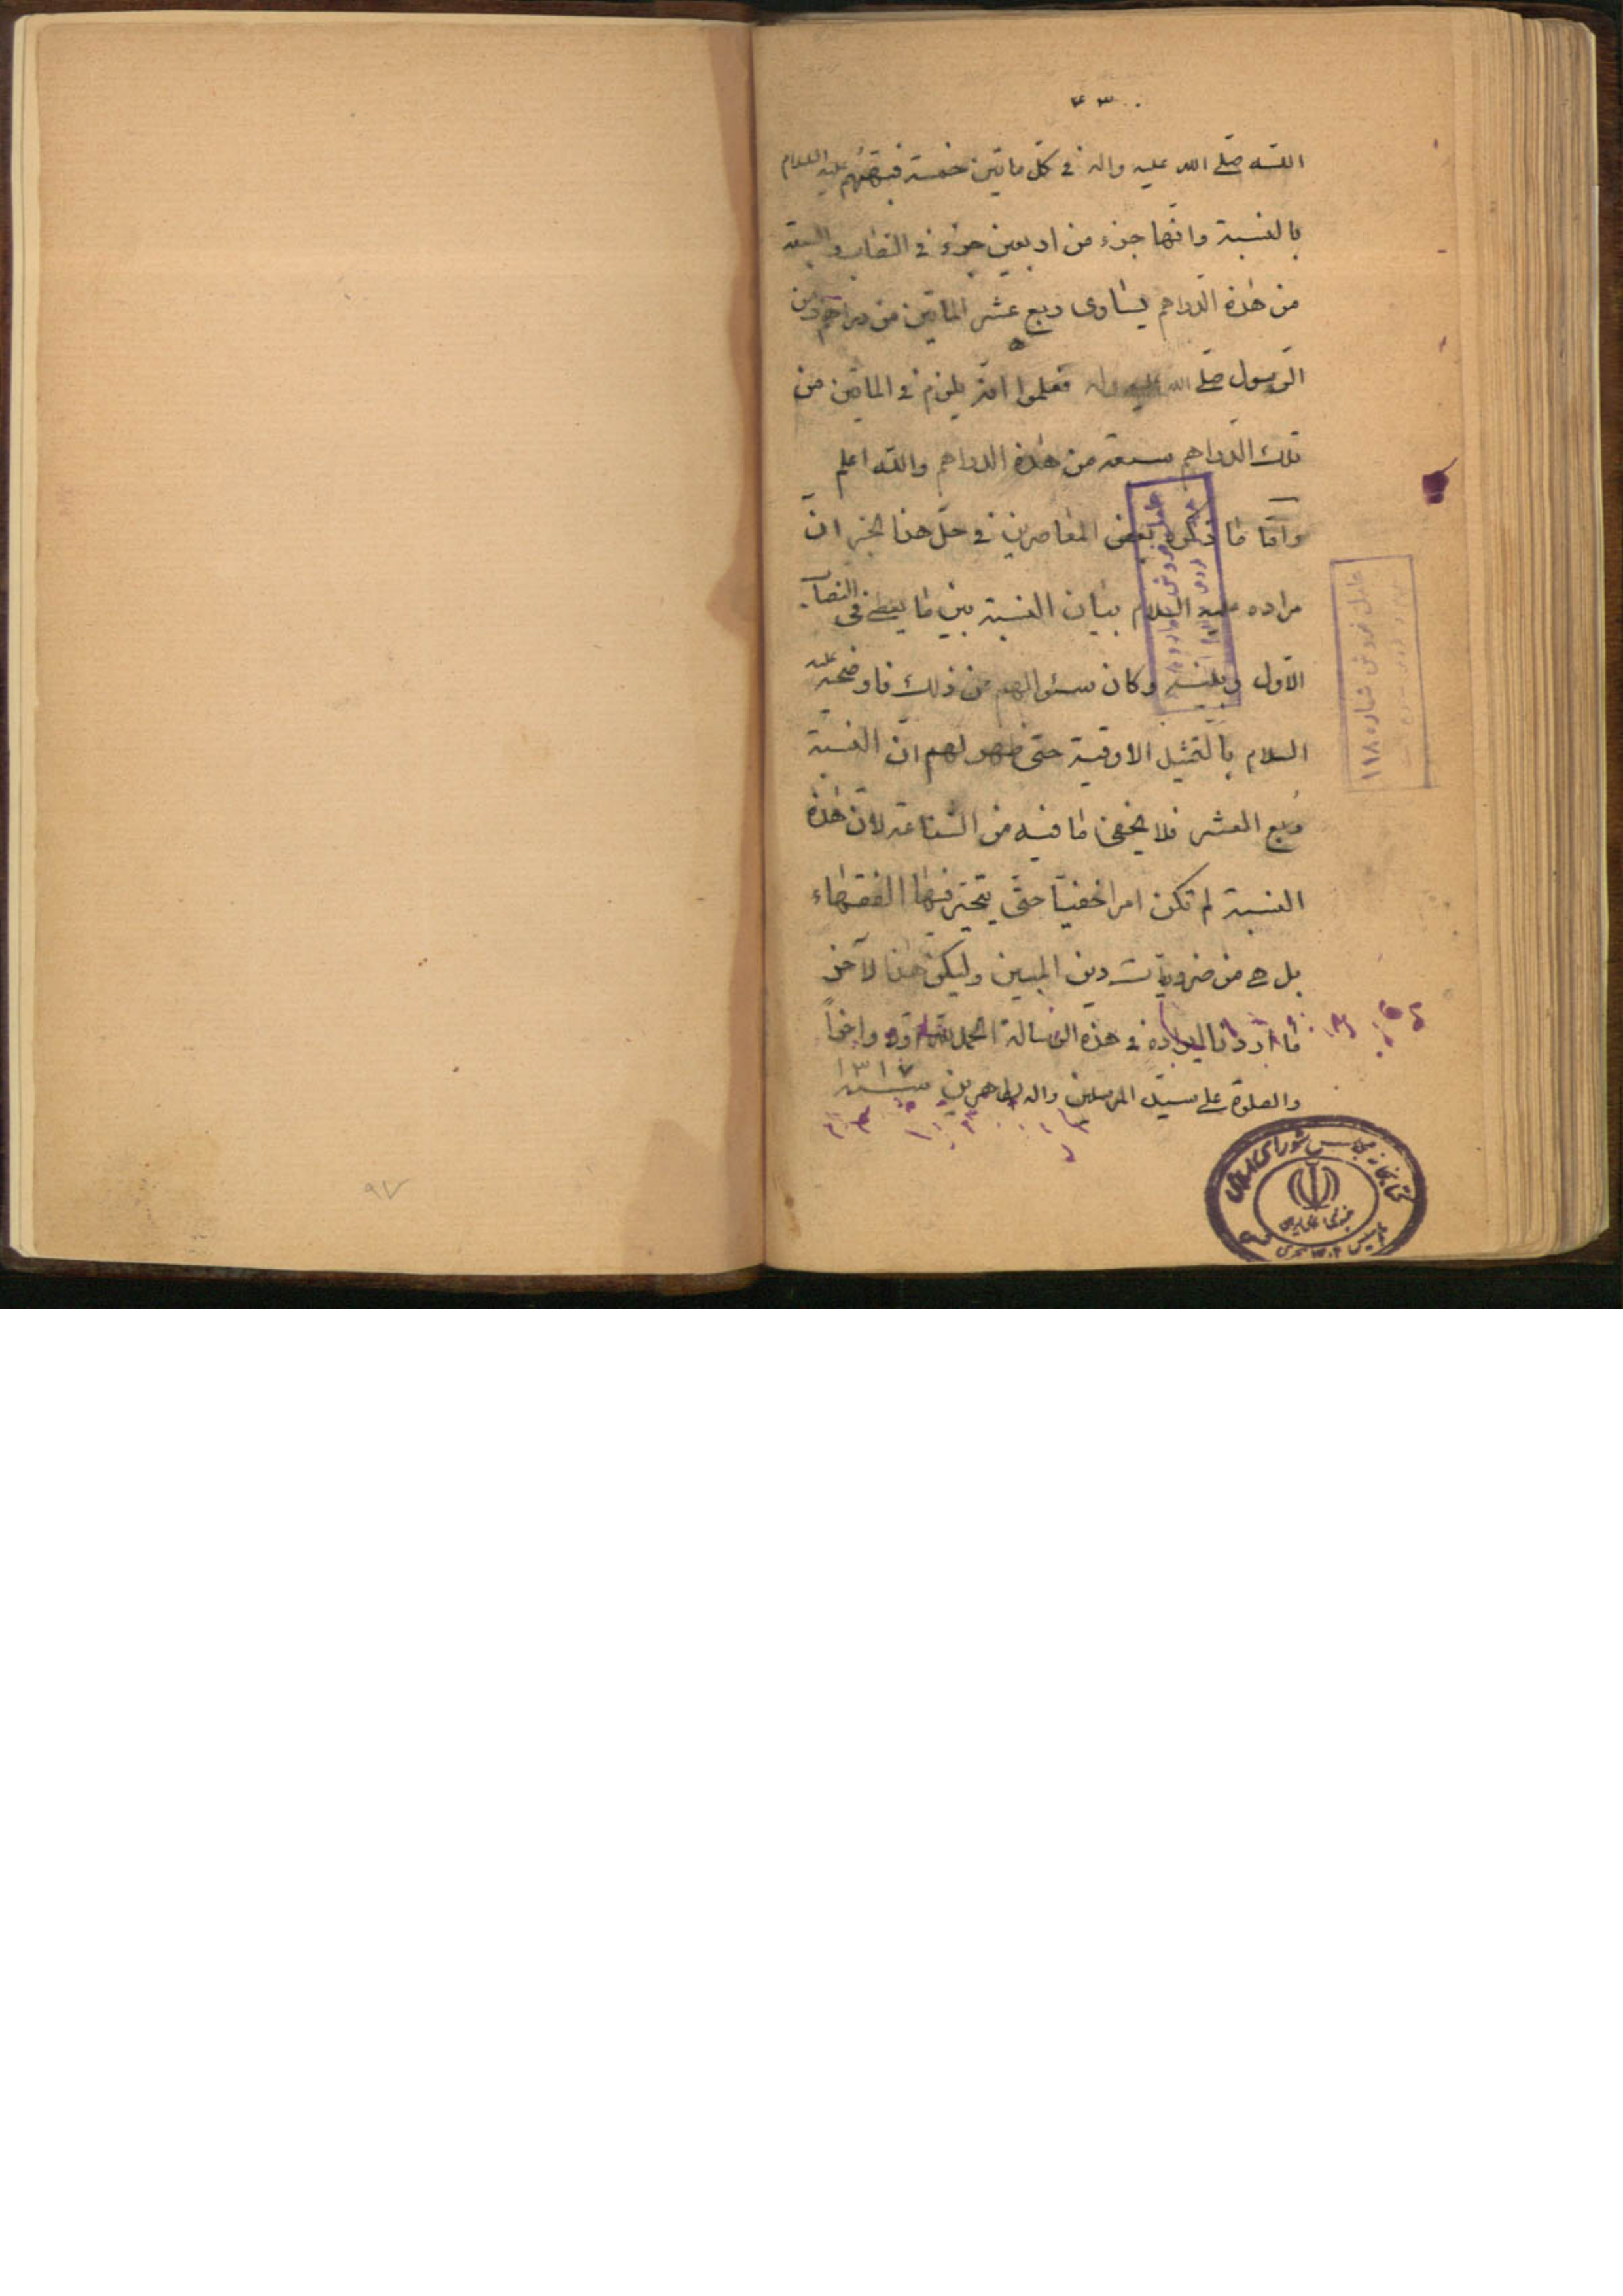 الله صلى الله عليه واله في كل مأتين خمسة فنبّههم عليه السلام
بالنسبة وانها جزء من اربعين جزء في النصاب والسبعة
من هذه الدراهم يساوى ربع عشر المأتين من دراهم زمن
الرسول صلى الله عليه واله فعلموا انه يلزم في المأتين من
تلك الدراهم سبعة من هذه الدراهم والله اعلم
وامّا ما ذكره بعض المعاصرين في حلّ هذا الخبر انّ
مراده عليه السلام بيان النسبة بين ما يعطى في النصاب
الاول وبينه وكان سئوالهم من ذلك فاوضحه عليه
السلام بالتمثيل الاوقية حتى ظهر لهم انّ النسبة
ربع العشر فلا يخفى ما فيه من الشناعة لانّ هذه
النسبة لم تكن امرا خفيّا حتّى يتحيّر فيها الفقهاء
بل هى من ضروريات دين المبين وليكن هذا لآخر
ما اردنا ايراده في هذه الرسالة الحمد لله اوّلا واخراً
والصلوة على سيّد المرسلين واله الطاهرين سنة ١٣١٧
عامل فروش شماره ١١٨
كتابخانه مجلس شوراى اسلامى
جمهورى اسلامى ايران
٩٧